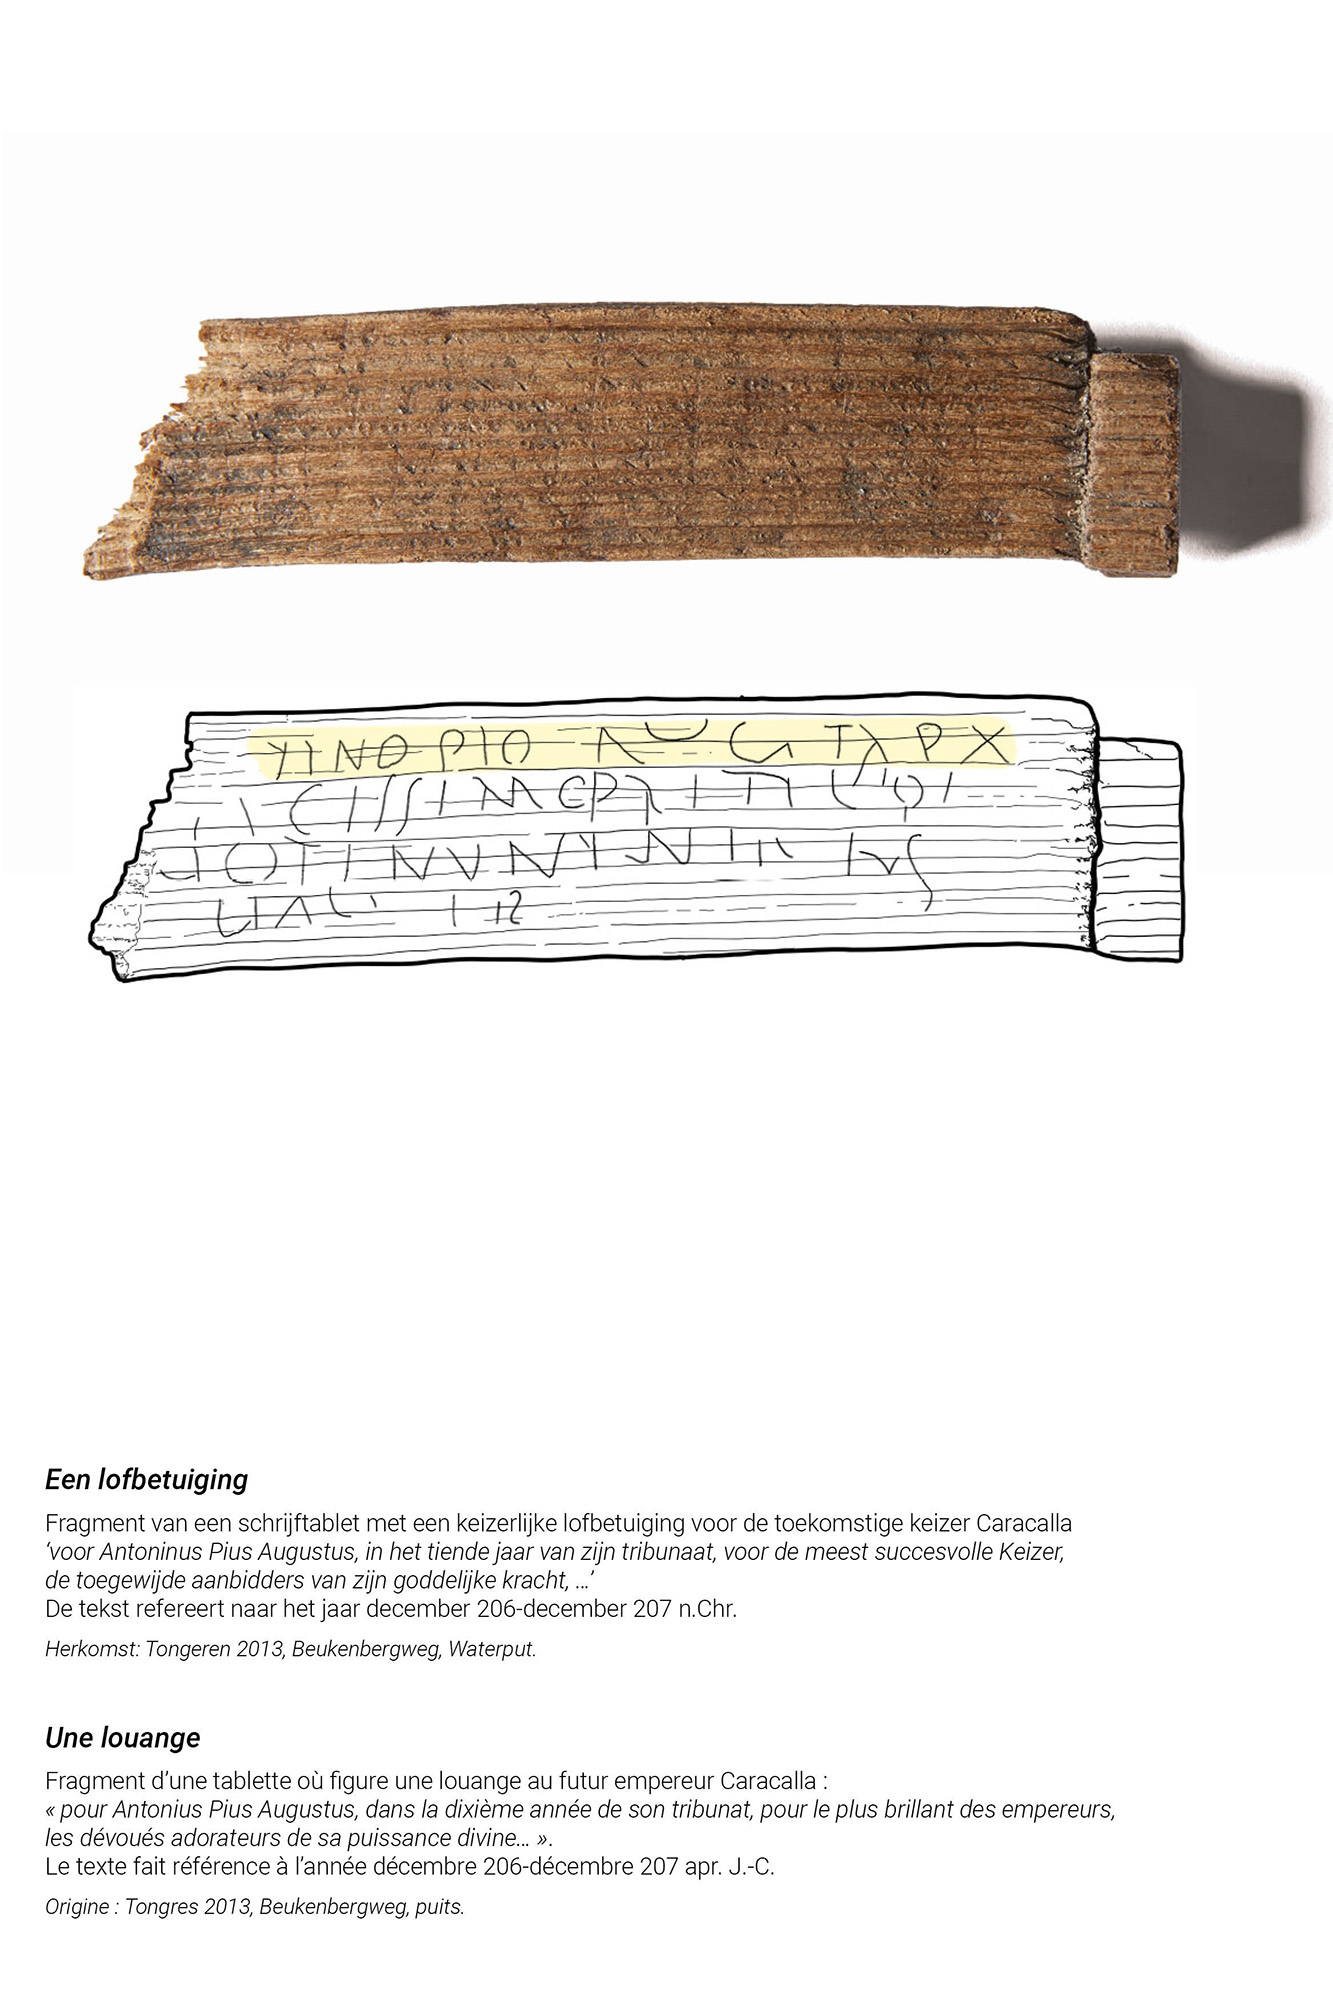 INO PIO AUG TR P X
ICISSIM PR
DEVOTI NUMINI EIUS
Een lofbetuiging
Fragment van een schrijftablet met een keizerlijke lofbetuiging voor de toekomstige keizer Caracalla
‘voor Antoninus Pius Augustus, in het tiende jaar van zijn tribunaat, voor de meest succesvolle Keizer,
de toegewijde aanbidders van zijn goddelijke kracht, ...’
De tekst refereert naar het jaar december 206-december 207 n.Chr.
Herkomst: Tongeren 2013, Beukenbergweg, Waterput.
Une louange
Fragment d’une tablette où figure une louange au futur empereur Caracalla :
« pour Antonius Pius Augustus, dans la dixième année de son tribunat, pour le plus brillant des empereurs,
les dévoués adorateurs de sa puissance divine... ».
Le texte fait référence à l’année décembre 206-décembre 207 apr. J.-C.
Origine : Tongres 2013, Beukenbergweg, puits.